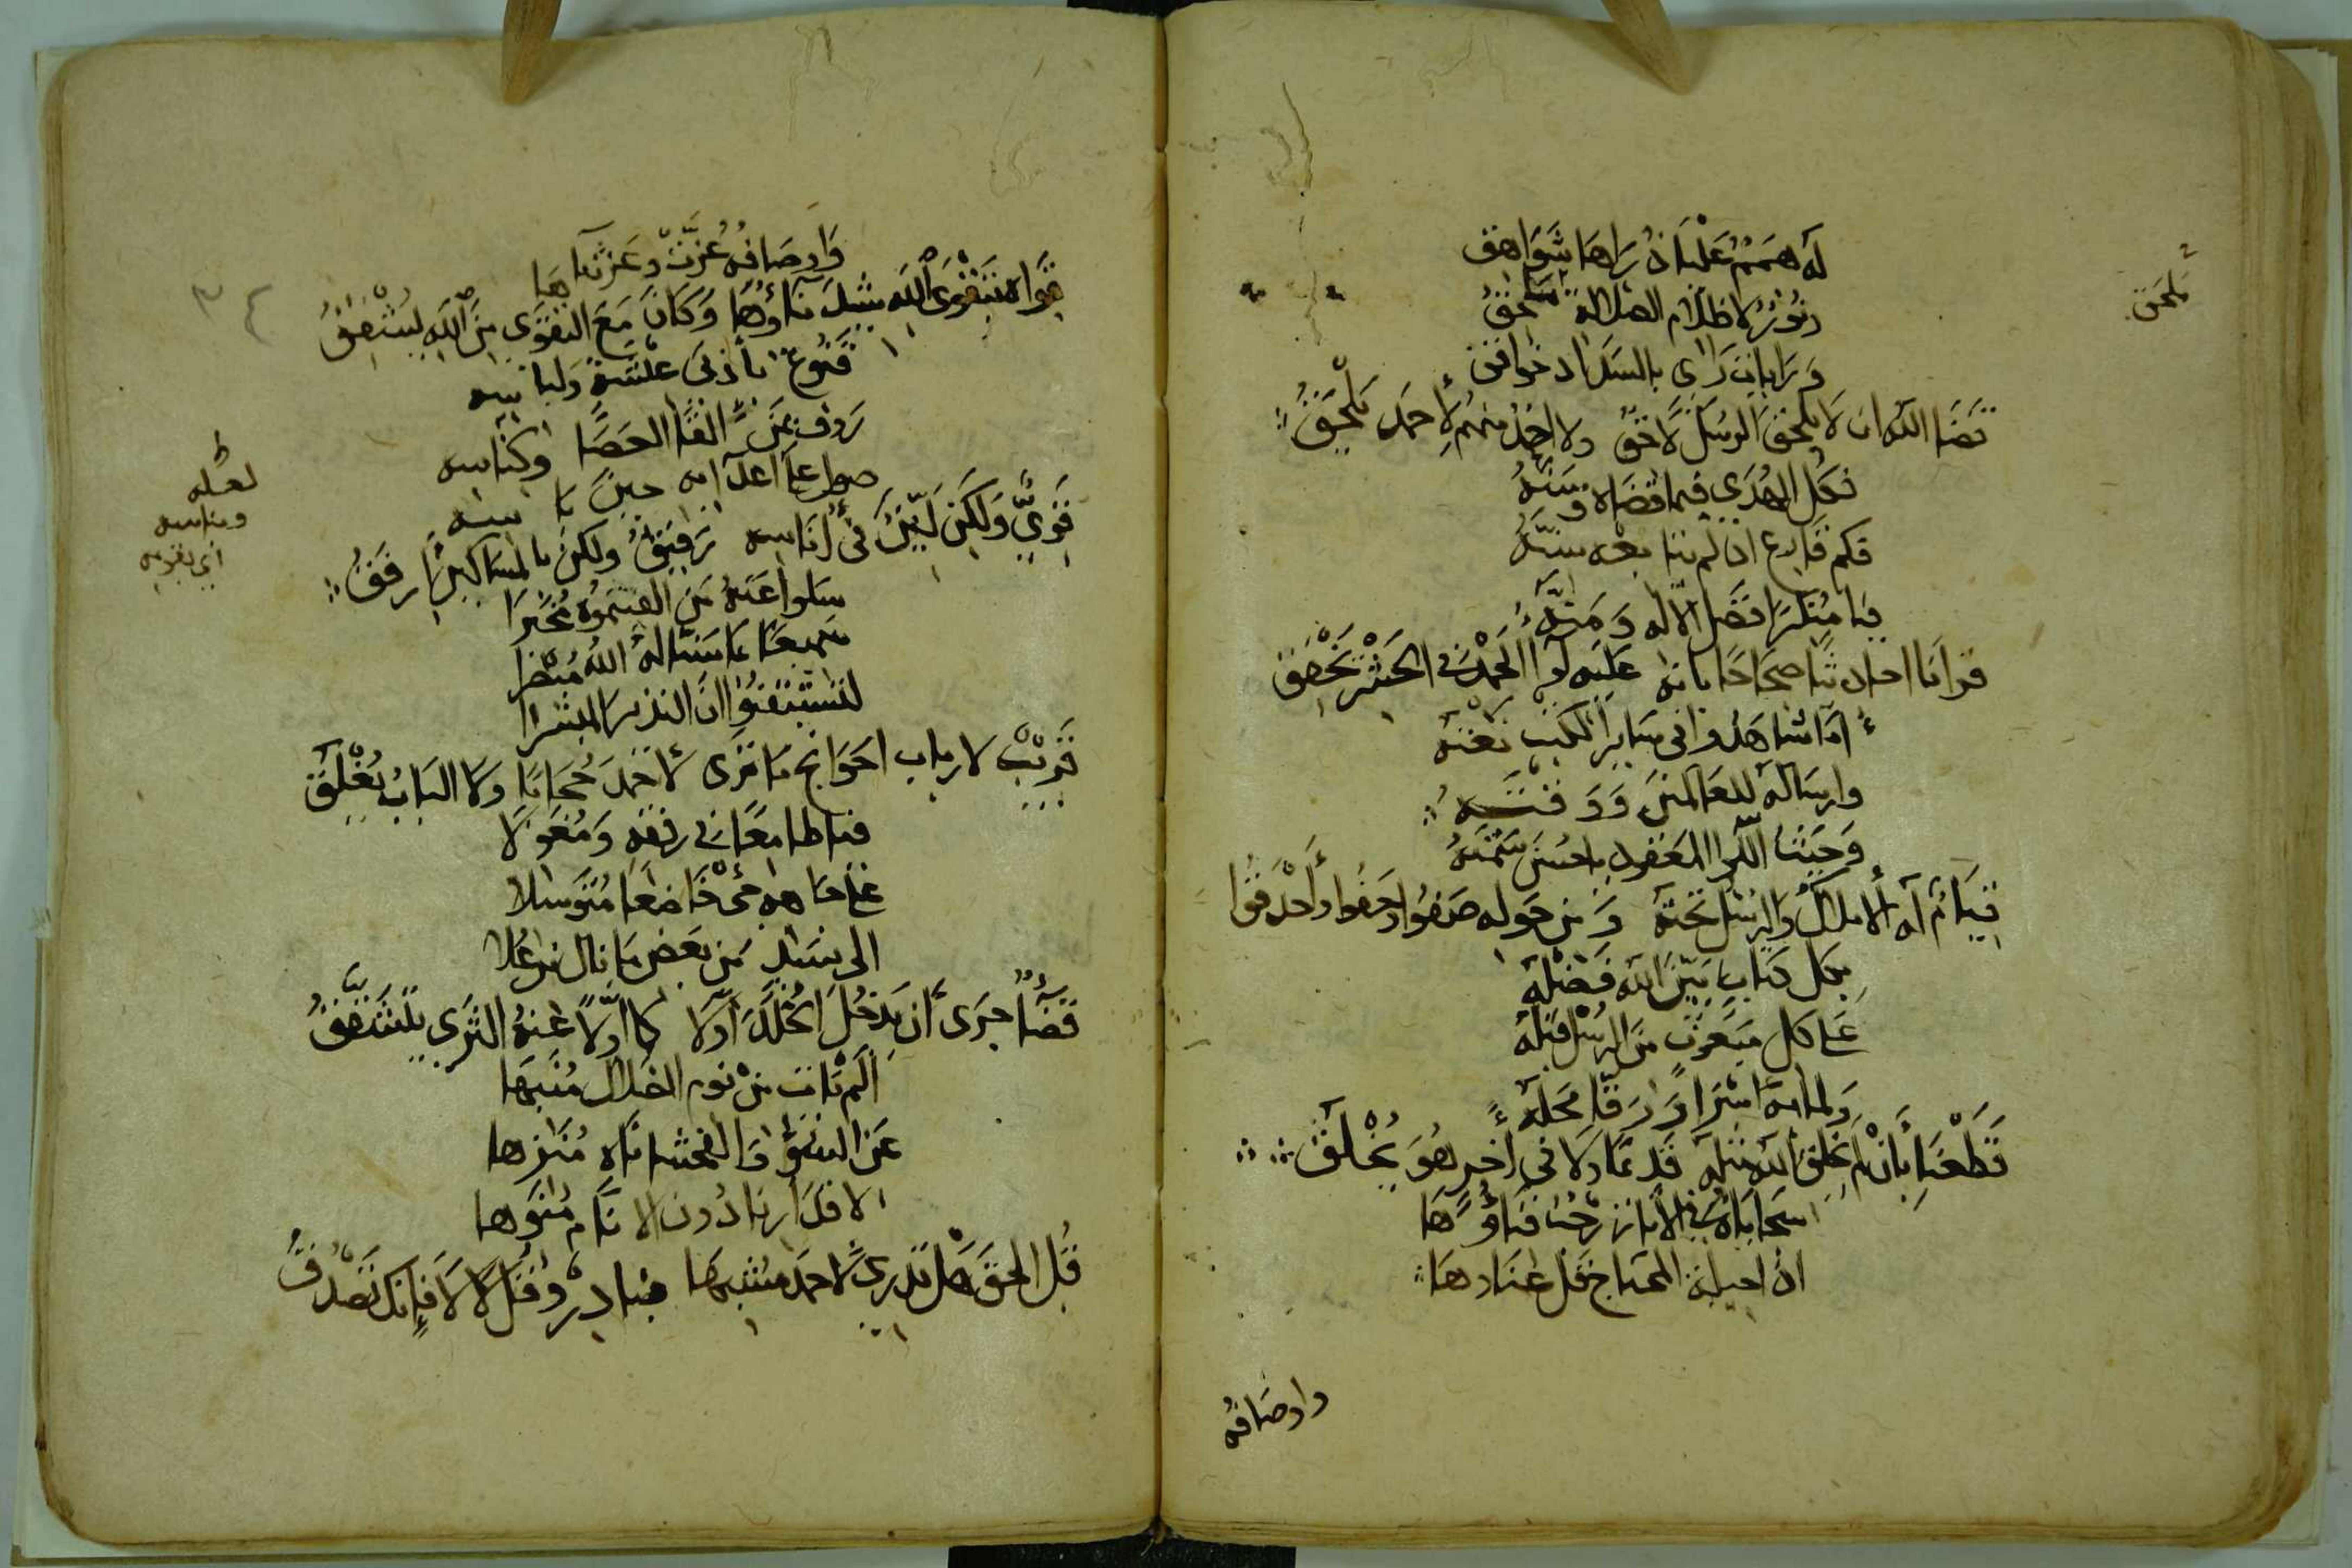 له همم عليا ذراها شواهق
ونور لاظلام الضلالة ممحق
ورايات راى بالسداد خوافق
قضا الله ان لا يلحق الرسل لاحق ولا احد منهم لاحمد يلحق
فكل الهدى فيما قضاه وسنه
فكم قارع ان لم ينا بعه سنه
فيا منكرا فضل الاله ومنه
قرانا احاديثا صحاحا بانه عليه لوا الحمد في الحشر يخفق
اما شاهدوا في ساير الكتب نعته
وارساله للعالمين ووقته
وحيث اللوا المعقود باحسن سمته
قيام له الاملاك والرسل تحته ومن حوله صفوا وحفوا واحدقوا
بكل كتاب بين الله فضله
على كل مبعوث من الرسل قبله
ولما به اسرا ورقا محله
قطعنا بان لم يخلق الله مثله قديما ولا في اخر هو يخلق
سجاياه في الاماز رحب فناؤها
ان احيلة المحتاج قل عنادها
واوصافه
يلحق
واوصافه عزت وعز بها
هواه بتقوى الله شيد بناؤها وكان مع التقوى من الله يشفق
قنوع بادنى عيشة ولباسه
رؤف بمن القا الحصا وكناسه
صوال على اعدائه حين باسه
قوي ولكن لين في اناسه رفيق ولكن بالمساكين ارفق
سلوا عنه من القيتموه مخبرا
سميعا بما سنا له الله مبصرا
لتستيقنوا ان النذير المبشرا
قريب لارباب الحوائج ما ترى لاحمد حجابا ولا الباب يغلق
فيا طامعا في رفقه ومعولا
على جاهه جئ خاضعا متوسلا
الى سيد من بعض ما نال من علا
قضا جرى ان يدخل الخلد اولا كما اولا عنه الثرى يتشقق
الم تات من نوم الضلال منبها
عن السوء والفحشا تاه منزها
الا قل ارتا دون الانام منوها
قل الحق هل تدري لاحمد مشبها فبادر وقل لا لا فانك تصدق
لعله
وبناسه
٣٤